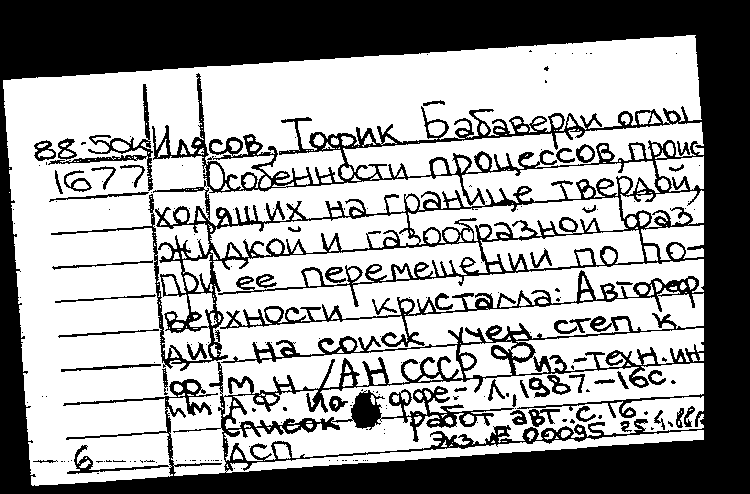 88-50к Илясов, Тофик Бабаверди оглы
1677 Особенности процессов, проис-
ходящих на границе твердой,
жидкой и газообразной фаз
при ее перемещении по по-
верхности кристалла: Автореф.
дис. на соиск. учен. степ. к.
ф.-м. н. /АН СССР, Физ.-техн. ин-т
им. А.Ф. Иоффе.- Л., 1987.-16с.
Список работ авт.: с. 16.
Экз. № 00095
6 ДСП.